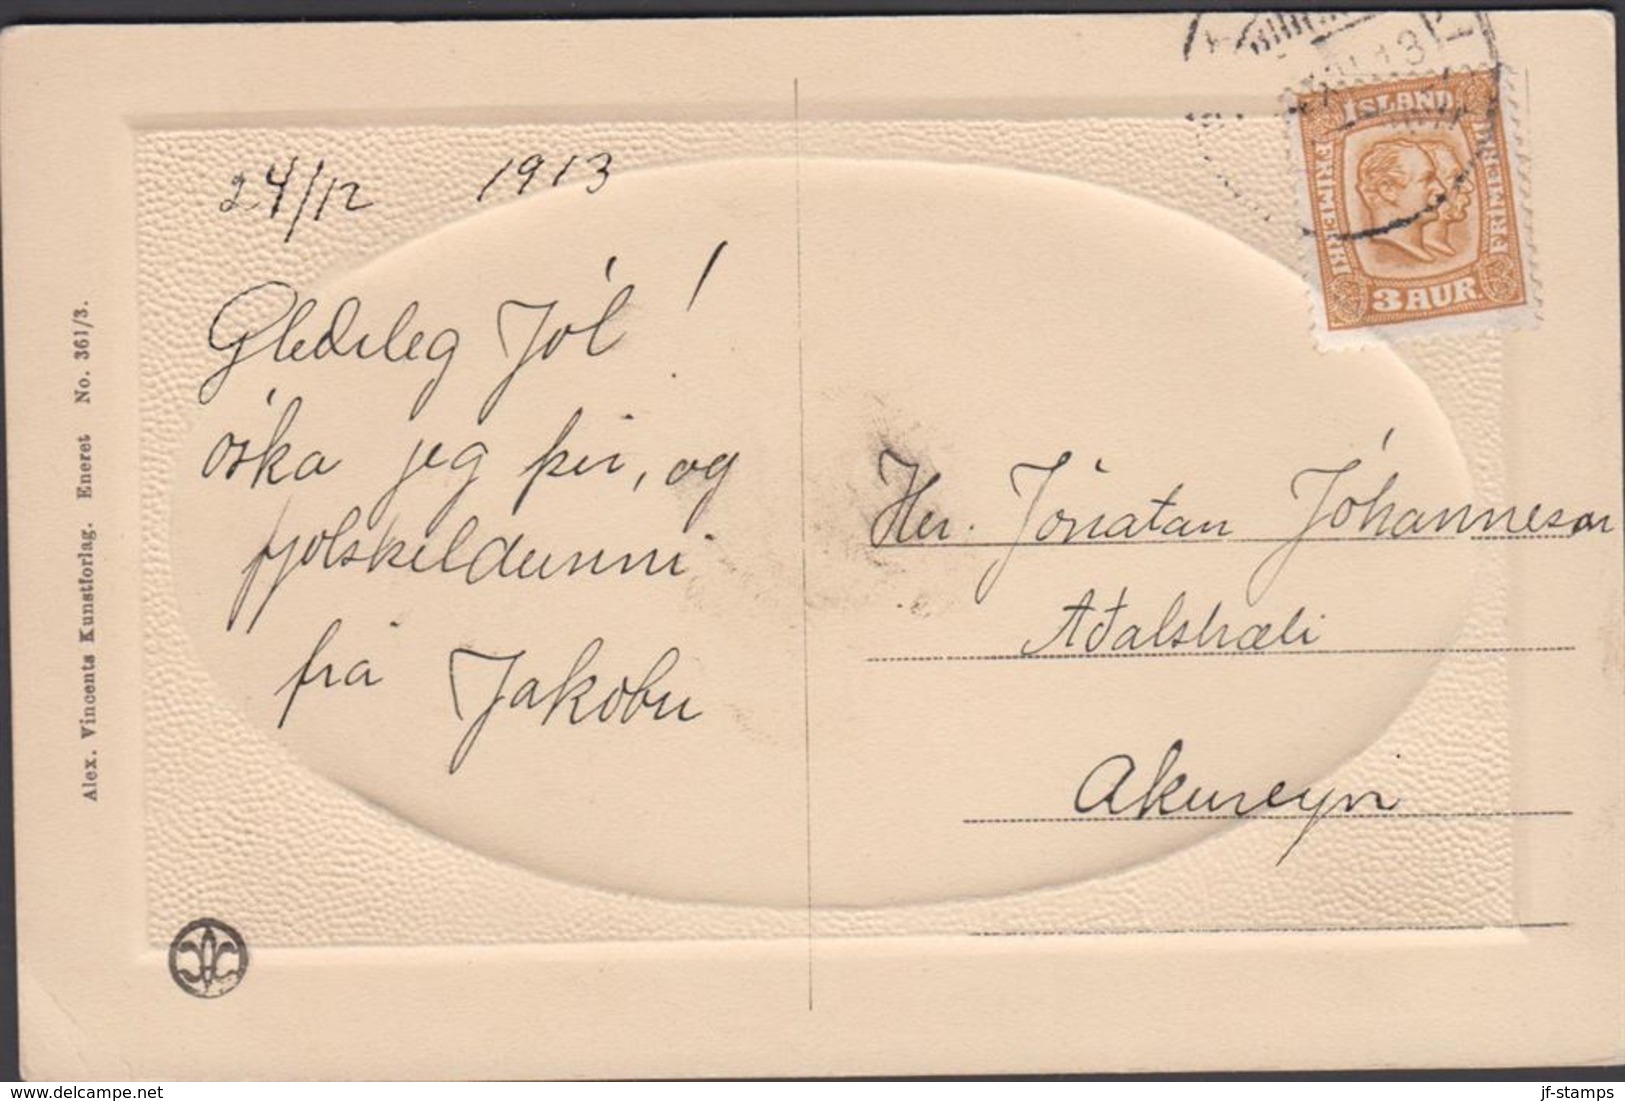 24/12 1913
Gleðileg Jól!
óska jeg þér, og
fjölskeldunni
frá Jakobu
Herr. Jónatan Jóhannesson
Aðalstræti
Akureyri
ÍSLAND
FRIMERKI
FRIMERKI
3 AUR.
13
Alex. Vincents Kunstforlag. Eneret No. 361/3.
www.delcampe.net
jf-stamps